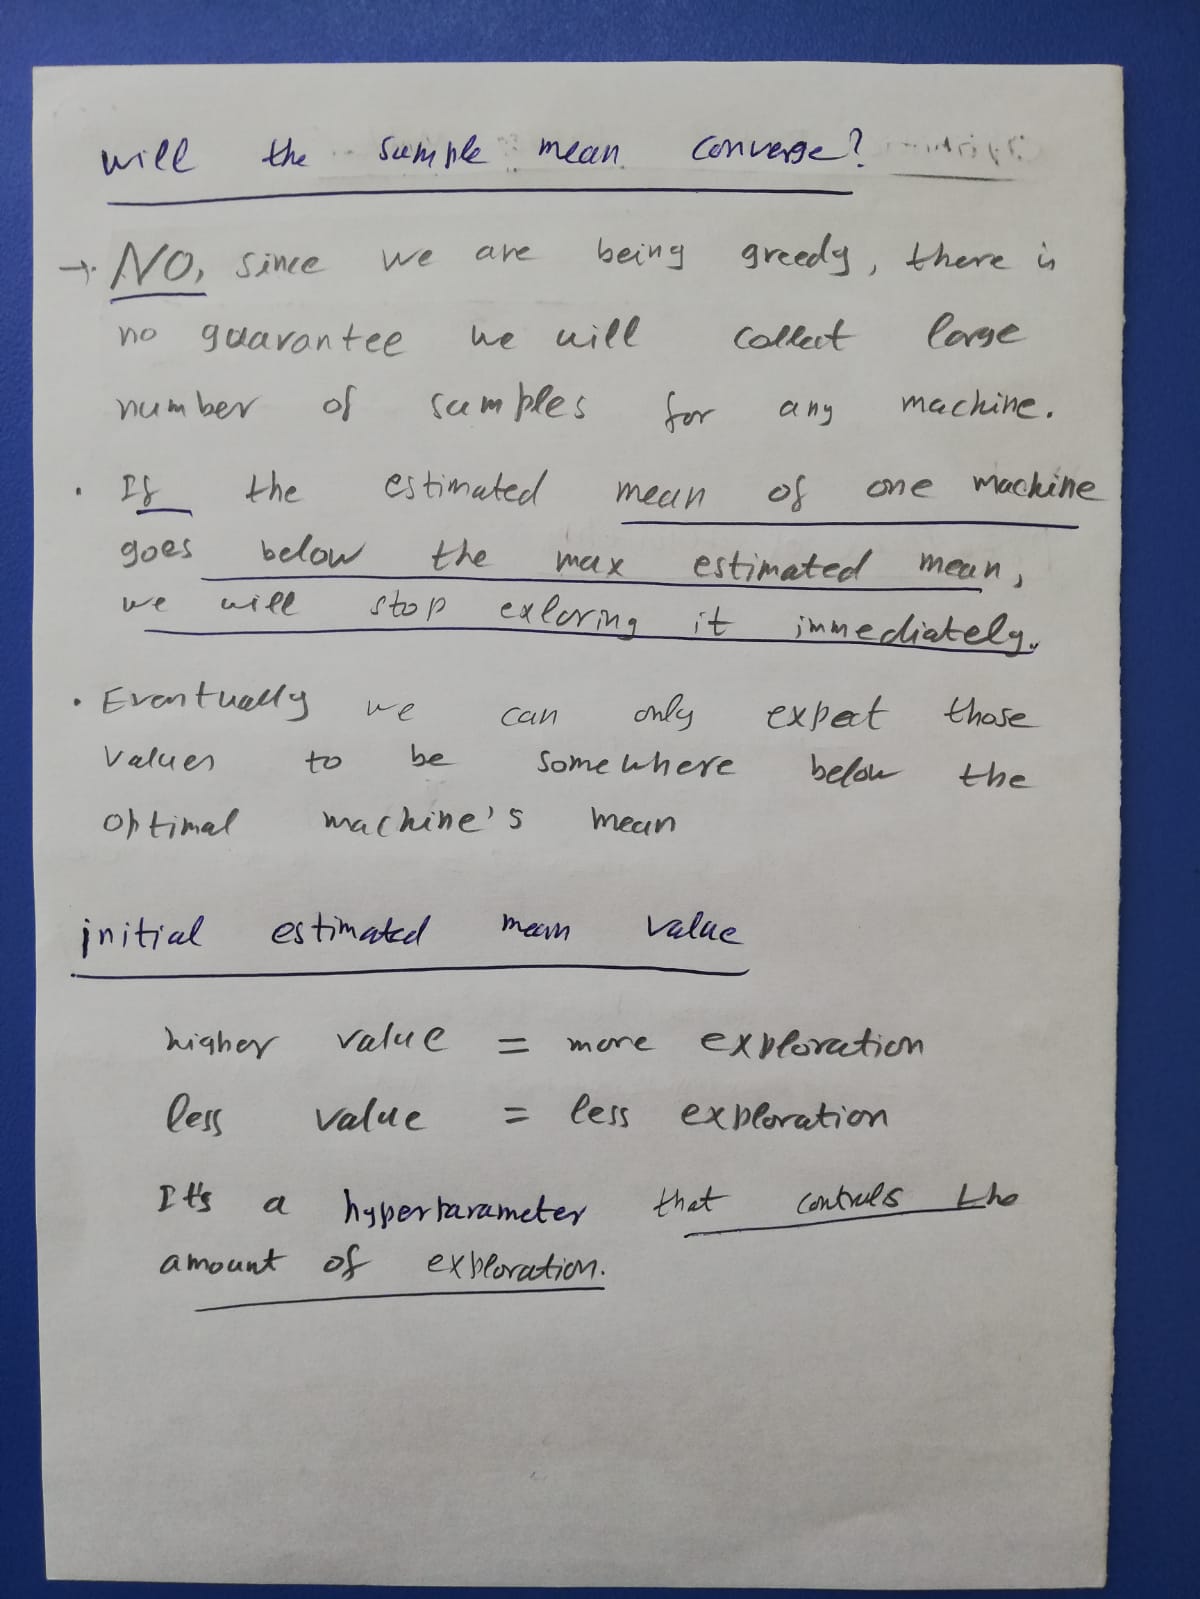 will the sample mean converge?
→ NO, since we are being greedy, there is
no guarantee we will collect large
number of samples for any machine.
• If the estimated mean of one machine
goes below the max estimated mean,
we will stop exloring it immediately.
• Eventually we can only expect those
values to be somewhere below the
optimal machine's mean
initial estimated mean value
higher value = more exploration
less value = less exploration
It's a hyperparameter that controls the
amount of exploration.